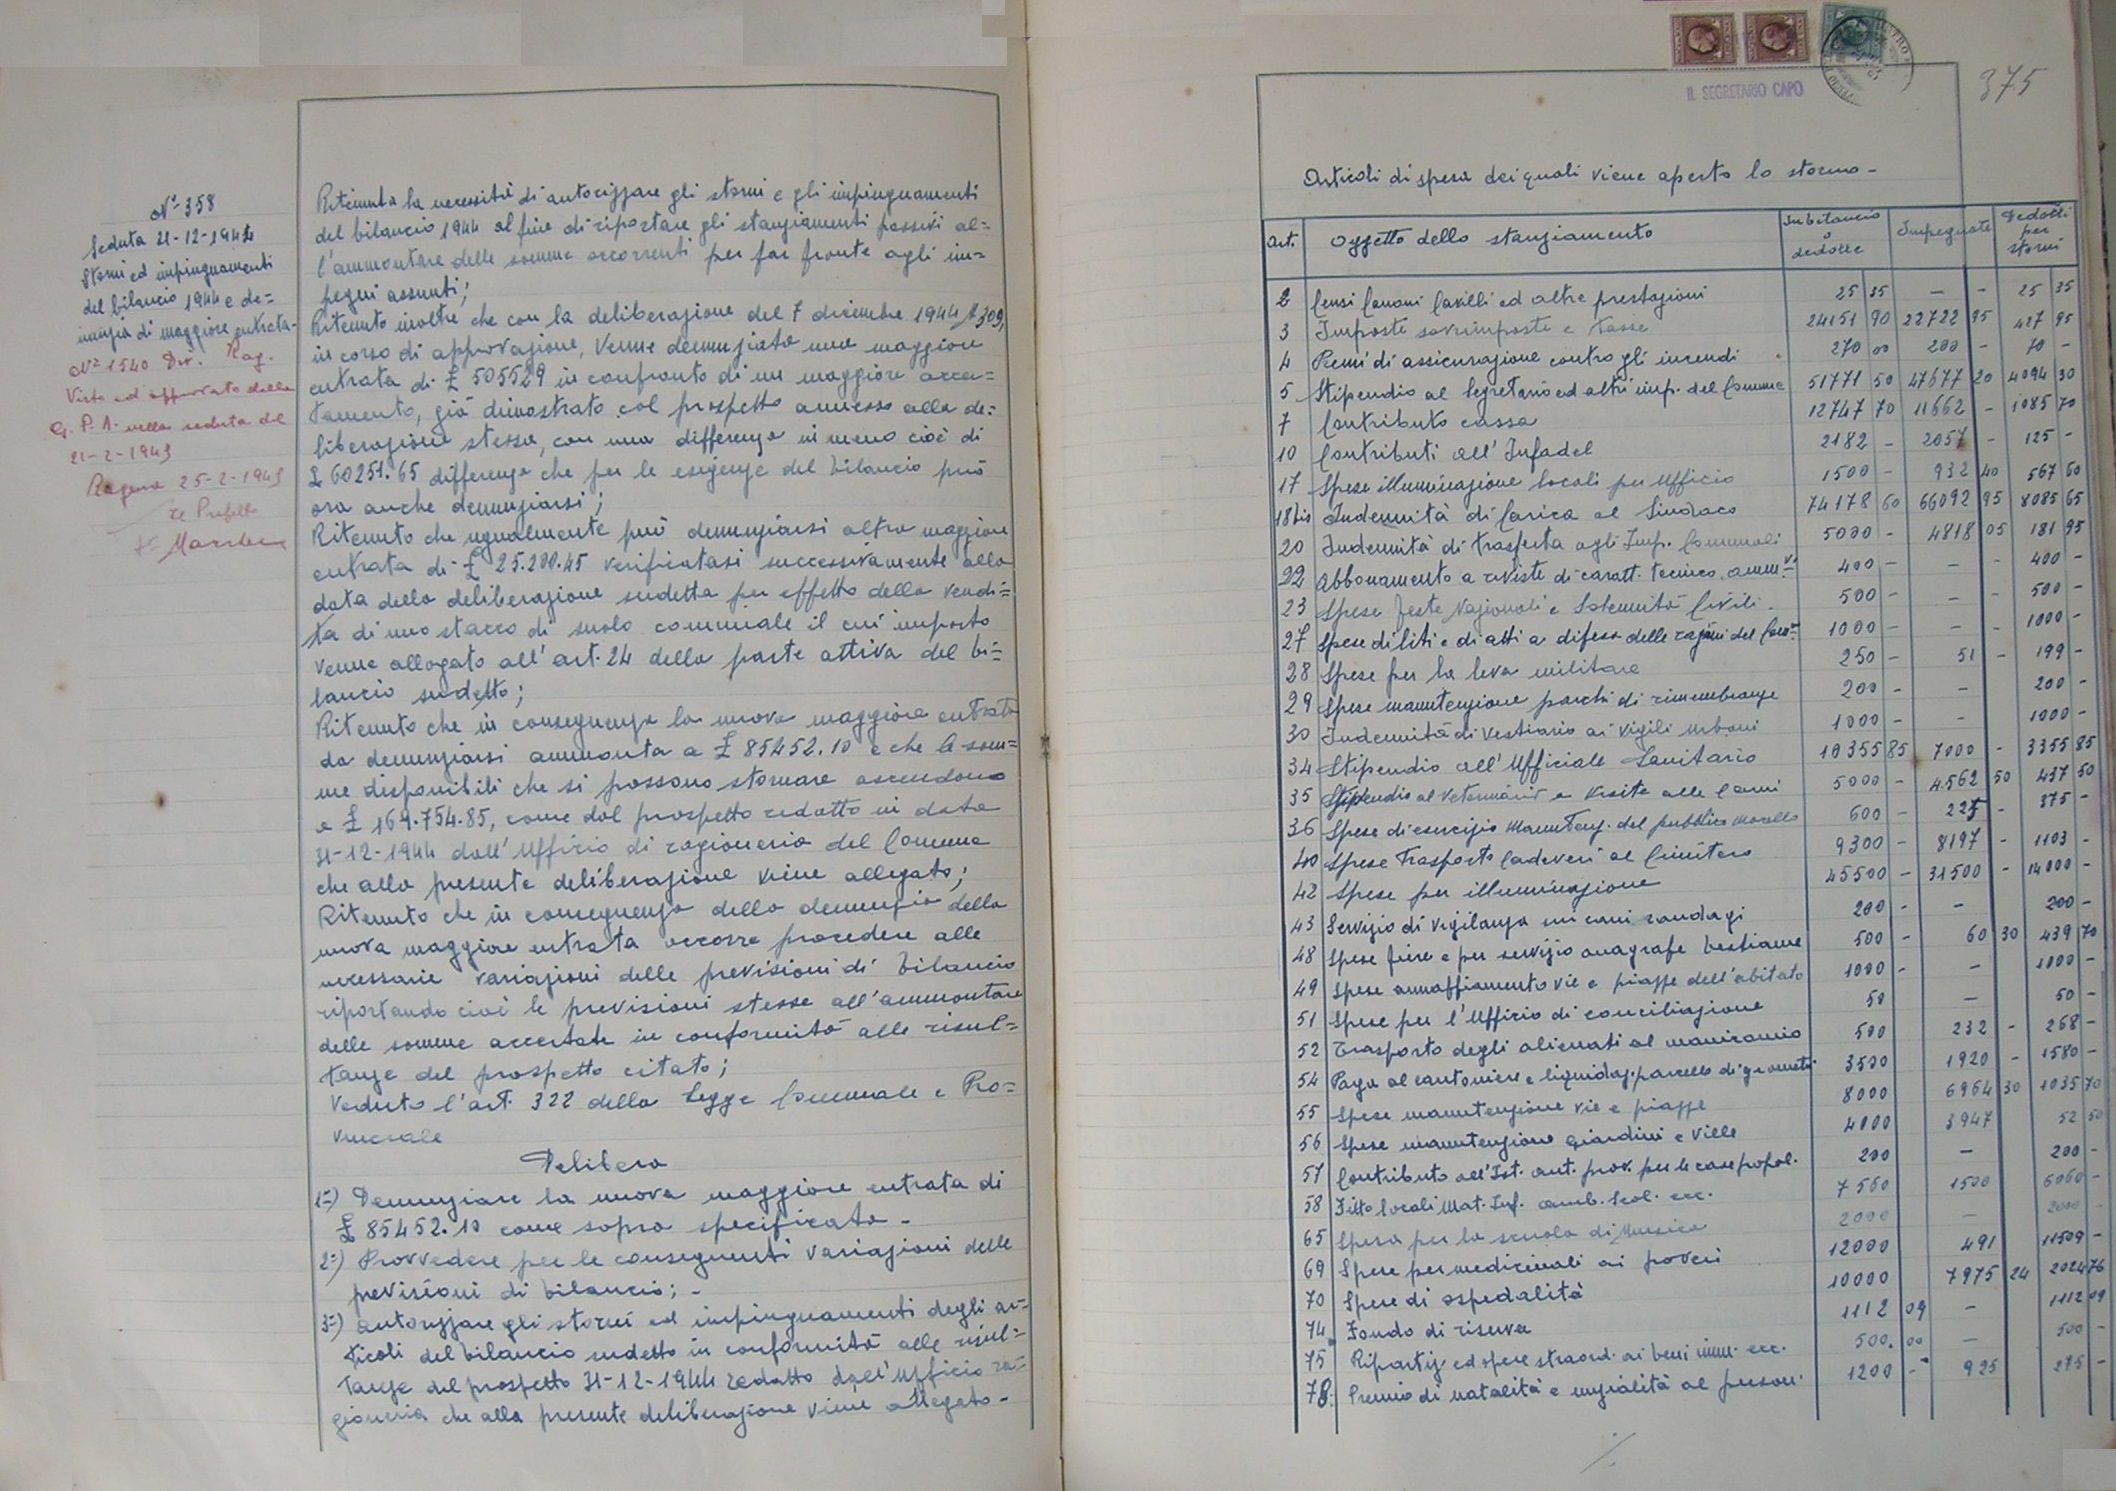 N° 358
Seduta 21-12-1944
Storni ed impinguamenti
del bilancio 1944 e de=
nunzia di maggiore entrata-
N° 1540 Div. Rag.
Visto ed approvato dalla
G. P. A. nella seduta del
21-2-1945
Ragusa 25-2-1945
Il Prefetto
Ritenuta la necessità di autorizzare gli storni e gli impinguamenti
del bilancio 1944 al fine di riportare gli stanziamenti passivi al=
l'ammontare delle somme occorrenti per far fronte agli im=
pegni assunti;
Ritenuto inoltre che con la deliberazione del 7 dicembre 1944 N 309,
in corso di approvazione, venne denunziata una maggiore
entrata di £ 505529 in confronto di un maggiore accer=
tamento, già dimostrato col prospetto annesso alla de=
liberazione stessa, con una differenza in meno cioè di
£ 60251.65 differenza che per le esigenze del bilancio può
ora anche denunziarsi;
Ritenuto che ugualmente può denunziarsi altra maggiore
entrata di £ 25.200.45 verificatasi successivamente alla
data della deliberazione sudetta per effetto della vendi=
ta di uno stacco di suolo comunale il cui importo
venne allogato all'art. 24 della parte attiva del bi=
lancio sudetto;
Ritenuto che in conseguenza la nuova maggiore entrata
da denunziarsi ammonta a £ 85452.10 e che le som=
me disponibili che si possono stornare ascendono
a £ 169.754.85, come dal prospetto redatto in data
31-12-1944 dall'Ufficio di ragioneria del Comune
che alla presente deliberazione viene allegato;
Ritenuto che in conseguenza della denunzia della
nuova maggiore entrata occorre procedere alle
necessarie variazioni delle previsioni di bilancio
riportando cioè le previsioni stesse all'ammontare
delle somme accertate in conformità alle risul=
tanze del prospetto citato;
Veduto l'art. 322 della Legge Comunale e Pro=
vinciale
Delibera
1=) Denunziare la nuova maggiore entrata di
£ 85452.10 come sopra specificata -
2=) Provvedere per le conseguenti variazioni delle
previsioni di bilancio; -
3=) autorizzare gli storni ed impinguamenti degli ar=
ticoli del bilancio sudetto in conformità alle risul=
tanze del prospetto 31-12-1944 redatto dall'Ufficio ra=
gioneria che alla presente deliberazione viene allegato-
IL SEGRETARIO CAPO
375
Articoli di spesa dei quali viene aperto lo storno -
Art. Oggetto dello stanziamento In bilancio o dedotte Impegnate Dedotti per storni
2 Censi Canoni Cavilli ed altre prestazioni 25 35 - - 25 35
3 Imposte sovrimposte e tasse 24151 90 22722 95 427 95
4 Premi di assicurazione contro gli incendi 270 00 200 - 70 -
5 Stipendio al Segretario ed altri imp. del Comune 51771 50 47677 20 4094 30
7 Contributo cassa 12747 70 11662 - 1085 70
10 Contributi all'Infadel 2182 - 2057 - 125 -
17 Spese illuminazione locali per Ufficio 1500 - 932 40 567 60
18 bis Indennità di Carica al Sindaco 74178 60 66092 95 8085 65
20 Indennità di trasferta agli Imp. Comunali 5000 - 4818 05 181 95
22 Abbonamento a riviste di caratt. tecnico amm.vi 400 - - - 400 -
23 Spese feste Nazionali e Solennità Civili - 500 - - - 500 -
27 Spese di liti e di atti a difesa delle ragioni del Com. 1000 - - - 1000 -
28 Spese per la leva militare 250 - 51 - 199 -
29 Spese manutenzione parchi di rimembranze 200 - - 200 -
30 Indennità di Vestiario ai vigili urbani 1000 - - 1000 -
34 Stipendio all'Ufficiale Sanitario 10355 85 7000 - 3355 85
35 Stipendio al Veterinario e visite alle Carni 5000 - 4562 50 437 50
36 Spese di esercizio Manutenz. del pubblico macello 600 - 225 - 375 -
40 Spese Trasporto Cadaveri al Cimitero 9300 - 8197 - 1103 -
42 Spese per illuminazione 45500 - 31500 - 14000 -
43 Servizio di vigilanza sui cani randagi 200 - - 200 -
48 Spese fiere e per servizio anagrafe bestiame 500 - 60 30 439 70
49 Spese annaffiamento vie e piazze dell'abitato 1000 - - 1000 -
51 Spese per l'Ufficio di conciliazione 50 - 50 -
52 Trasporto degli alienati al manicomio 500 232 - 268 -
54 Paga al cantoniere e liquidaz. parcella di geometri 3500 1920 - 1580 -
55 Spese manutenzione vie e piazze 8000 6964 30 1035 70
56 Spese manutenzione giardini e ville 4000 3947 52 50
57 Contributo all'Ist. aut. prov. per le case popol. 200 - 200 -
58 Fitto locali Mat. Inf. amb. Scol. ecc. 7560 1500 6060 -
65 Spesa per la scuola di Musica 2000 - 2000 -
69 Spese per medicinali ai poveri 12000 491 11509 -
70 Spese di ospedalità 10000 7975 24 2024 76
74 Fondo di riserva 1112 09 - 1112 09
75 Ripartiz. ed spese straord. ai beni imm. ecc. 500.00 - 500 -
78. Premio di natalità e nuzialità al person. 1200 - 925 275 -